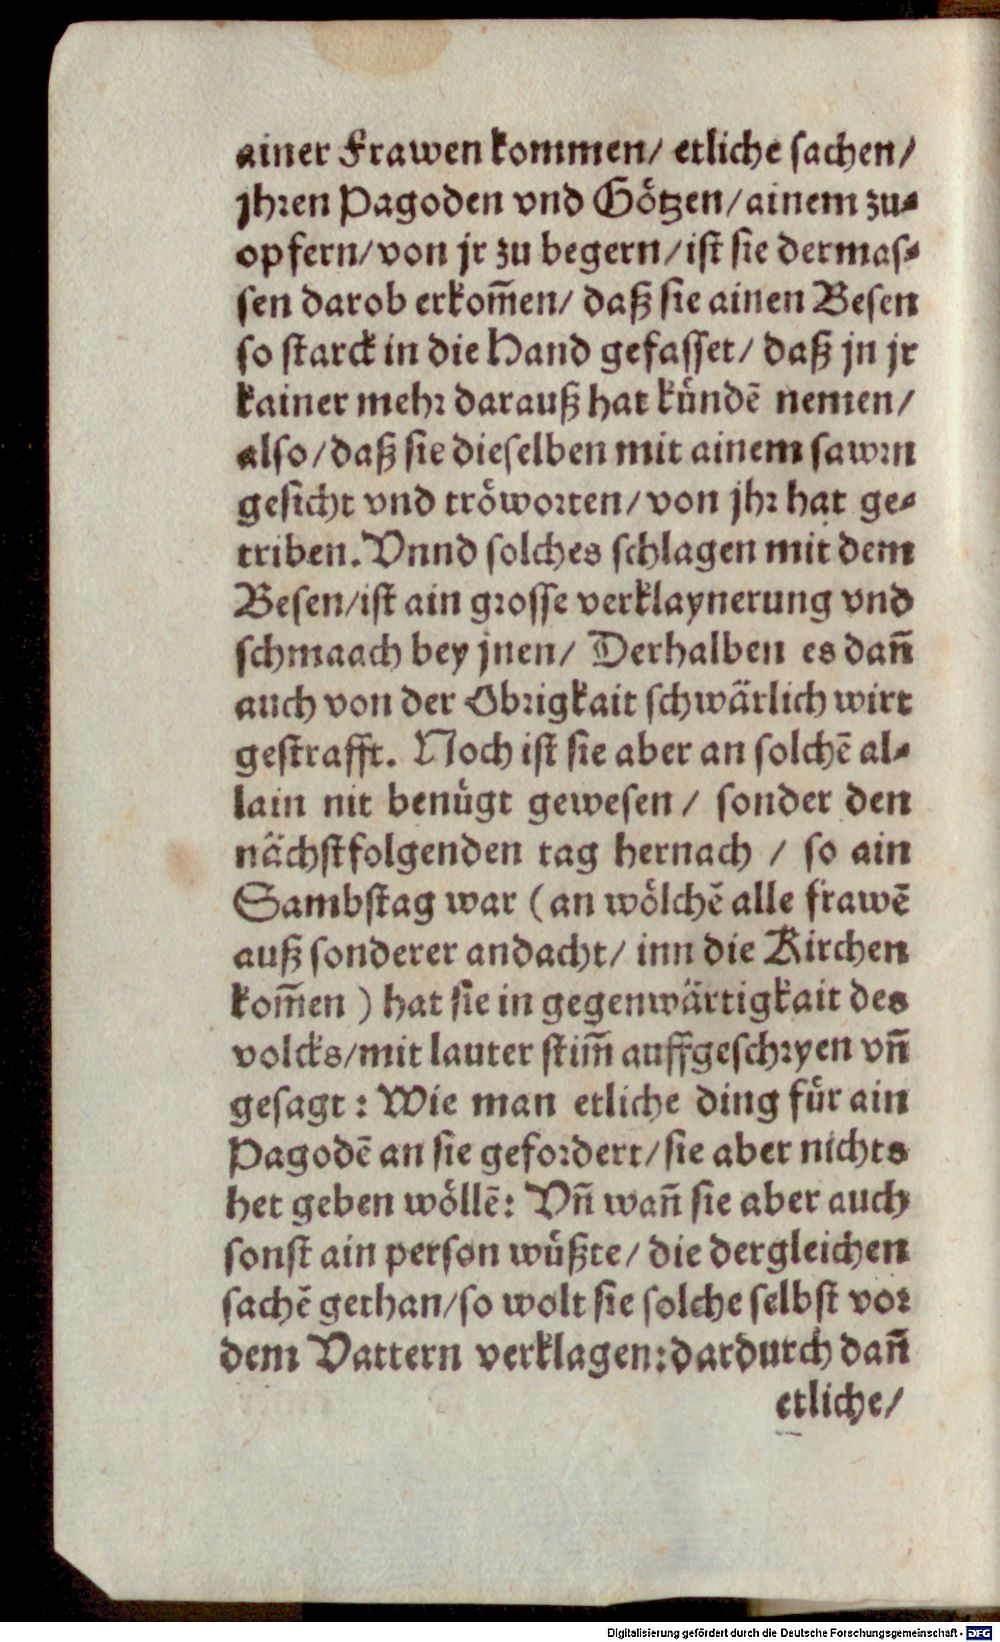 ainer Frawen kommen/ etliche sachen/
jhren Pagoden vnd Goͤtzen/ainem zu⸗
opfern/von jr zu begern/ist sie dermas⸗
sen darob erkom̃en/ daß sie ainen Besen
so starck in die Hand gefasset/ daß jn jr
kainer mehr darauß hat kuͤndẽ nemen/
also/daß sie dieselben mit ainem sawrn
gesicht vnd troͤworten/von jhr hat ge⸗
triben. Vnnd solches schlagen mit dem
Besen/ist ain grosse verklaynerung vnd
schmaach bey jnen/ Derhalben es dañ
auch von der Obrigkait schwaͤrlich wirt
gestrafft. Noch ist sie aber an solchẽ al⸗
lain nit benuͤgt gewesen / sonder den
naͤchstfolgenden tag hernach / so ain
Sambstag war (an woͤlchẽ alle frawẽ
auß sonderer andacht/ inn die Kirchen
kom̃en ) hat sie in gegenwaͤrtigkait des
volcks/mit lauter stim̃ auffgeschryen vñ
gesagt : Wie man etliche ding fuͤr ain
Pagodẽ an sie gefordert/sie aber nichts
het geben woͤllẽ: Vñ wañ sie aber auch
sonst ain person wuͤßte/ die dergleichen
sachẽ gethan/so wolt sie solche selbst vor
dem Vattern verklagen:dardurch dañ
etliche/
Digitalisierung gefördert durch die Deutsche Forschungsgemeinschaft - DFG